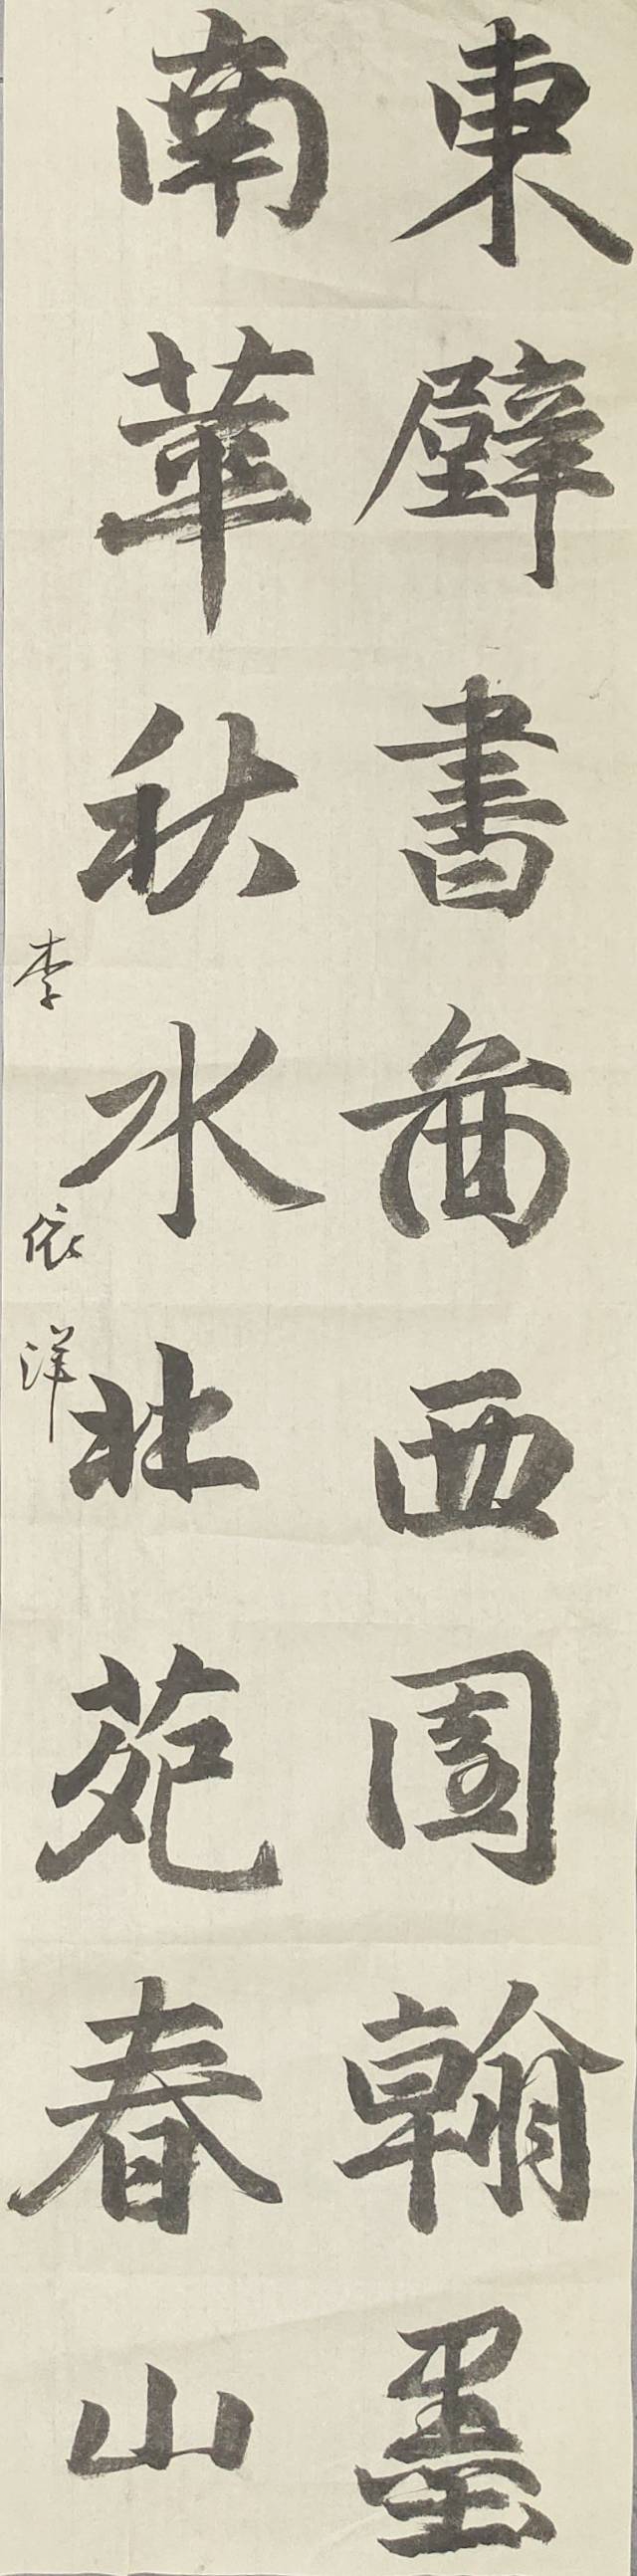 東壁書啚西園翰墨
南華秋水北苑春山
李依洋